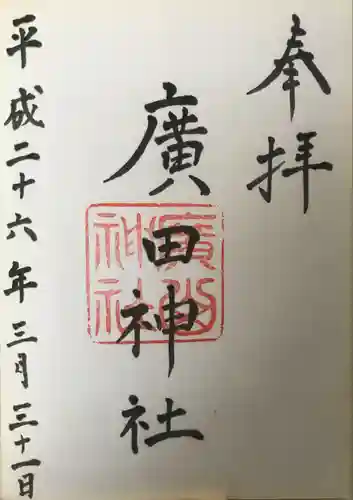 奉拝
廣田神社
平成二十六年三月三十一日